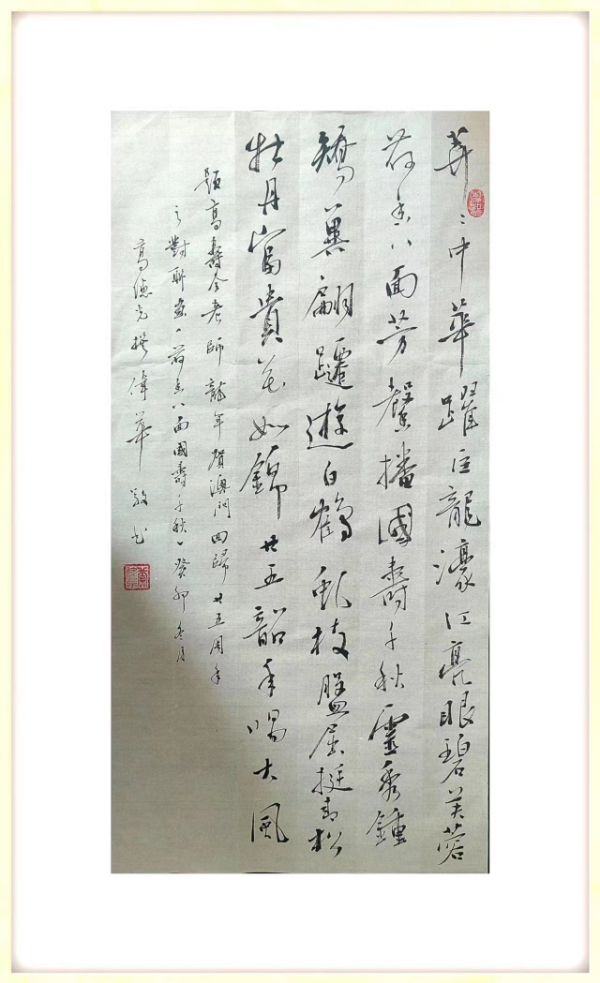 莽〻中華躍巨龍濠江亮眼碧芙蓉
荷香八面芳馨播國壽千秋靈秀鍾
矯翼翩躚遊白鶴虬枝盤屈挺青松
牡丹富貴花如錦廿五韶年唱大風
題高壽荃老師龍年賀澳門回歸廿五周年
之對聯畫「荷香八面國壽千秋」癸卯冬月
高德光撰偉華敬书